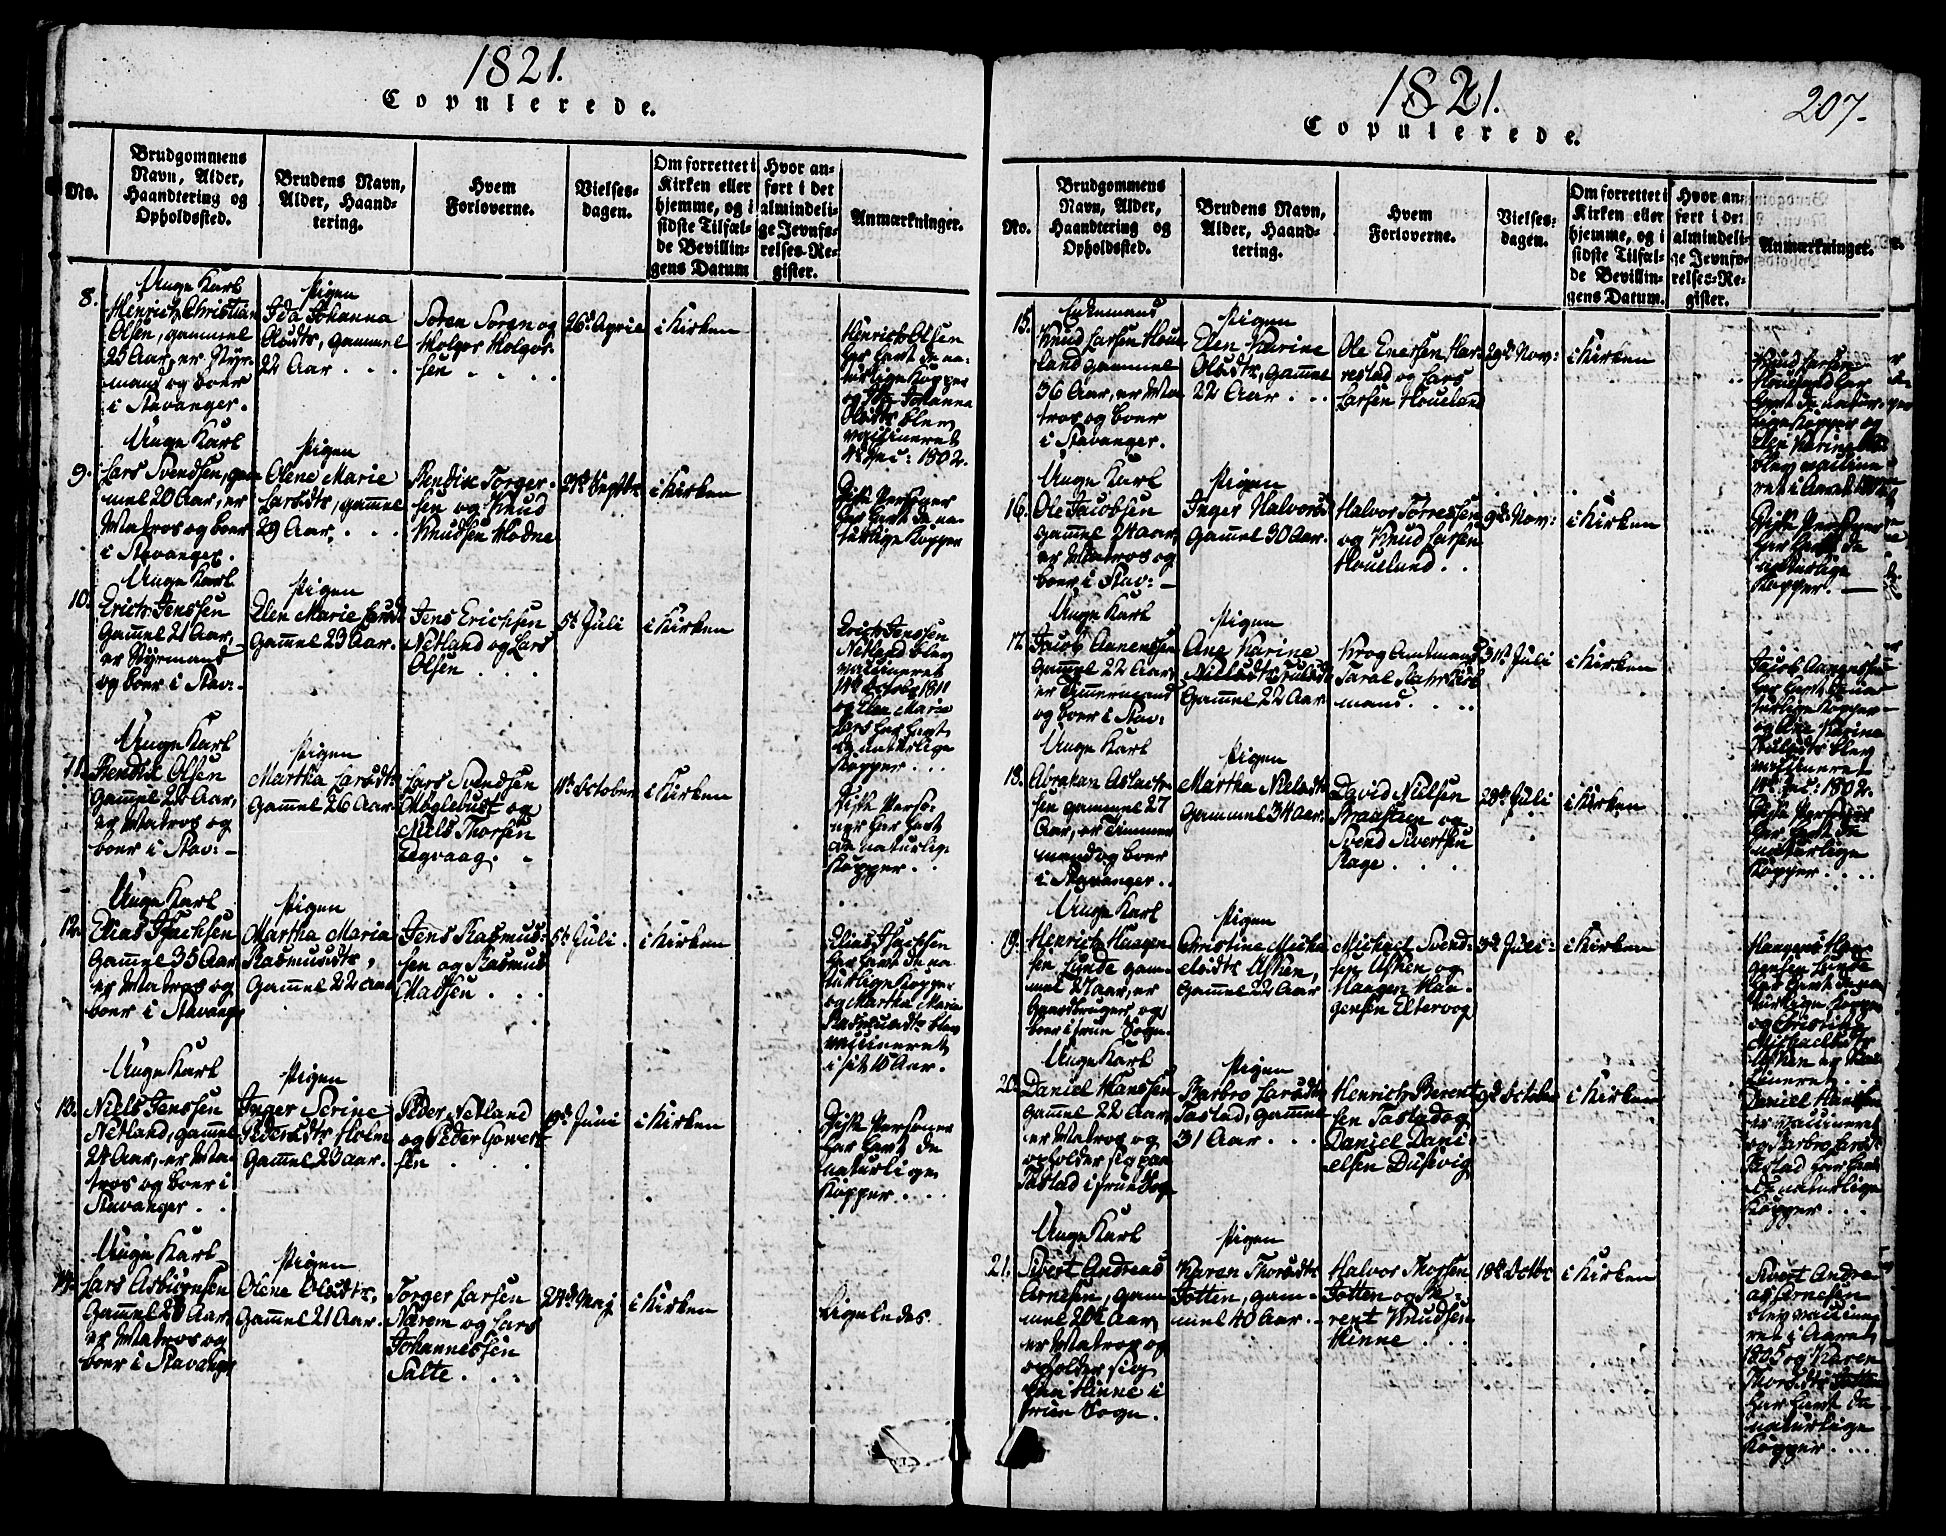 1821.
Copulerede.
No.
Brudgommens
Navn, Alder,
Haandtering og
Opholdssted.
Brudens Navn,
Alder, Haand-
tering.
Hvem
Forloverne.
Vielses-
dagen.
Om forrettet i
Kirken eller
hjemme, og i
sidste Tilfæl-
de Bevillin-
gens Datum
Hvor an-
ført i det
almindeli-
ge Jevnfø-
relses-Re-
gister.
Anmærkninger.
8.
Unge Karl
Henrich Christian
Olsen, gammel
25 Aar, er Styr-
mand og boer
i Stavanger.
Pigen
Ida Johanna
Olsdtr, gammel
22 Aar . . .
Søren Soren og
Holger Holger-
sen . . . .
26de April
i Kirken
Henrich Olsen
har havt de na-
turlige Kopper
og Ida Johanna
Olsdtr blev
vaccineret
Dec: 1802.
9.
Unge Karl
Lars Svendsen, gam
mel 20 Aar, er
Matros og boer
i Stavanger.
Pigen
Olene Marie
Larsdtr, gam̄el
29 Aar. . . .
Bendix Torger-
sen og Knud
Knudsen Hodne
Septbr
i Kirken
Disse Personer
har havt de na-
turlige Kopper
10.
Unge Karl
Erich Jenssen
Gam̄el 21 Aar,
er Styrmand
og boer i Stav:-
Pigen
Elen Marie Larsdt
Gam̄el 23 Aar.
Jens Erichsen
Netland og Lars
Olsen . . .
5te Juli
i Kirken
Erich Jenssen
Netland blev
vaccineret
October 1811
og Elen Marie
Lars har havt
de naturlige
Kopper . . .
11.
Unge Karl
Bendix Olsen
Gam̄el 28 Aar,
er Matros og
boer i Stav:-
Pigen
Martha Larsdtr
Gam̄el 26 Aar
Lars Svendsen
Møglebust og
Niels Thorsen
Eegvaag. -
October
i Kirken
Disse Perso-
ner har havt
de naturlig:
Kopper . .
12.
Unge Karl
Elias Isachsen
Gam̄el 35 Aar
er Matros og
boer i Stavanger
Pigen
Martha Maria
Rasmusdtr,
Gam̄el 22 Aar
Jens Rasmus-
sen og Rasmus
Madsen . . .
5te Juli.
i Kirken
Elias Isachsen
har havt de na
turlige Kopper
og Martha Maria
Rasmusdtr blev
vaccineret
i sit 15 Aar.
13.
Unge Karl
Niels Jenssen
Netland, gam̄el
24 Aar, er Ma-
tros og boer i
Stavanger . .
Pigen
Inger Serine
Pedersdtr Holm
Gam̄el 23 Aar.
Peder Netland
og Peder Gowert-
sen . . .
Juni
i Kirken
Disse Personer
har havt de
naturlige
Kopper . . .
14.
Unge Karl
Lars Asbiørnsen
Gam̄el 28 Aar,
er Matros og
boer i Stavanger
Pigen
Olene Olsdtr,
Gam̄el 21 Aar.
Torger Larsen
Nærem og Lars
Johannessen
Salte . . .
24de Maj
i Kirken
Ligeledes.
1821.
207.
Copulerede.
No.
Brudgommens
Navn, Alder,
Haandtering og
Opholdsted.
Brudens Navn,
Alder, Haand-
tering.
Hvem
Forloverne.
Vielses-
dagen.
Om forrettet i
Kirken eller
hjemme, og i
sidste Tilfæl-
de Bevillin-
gens Datum.
Hvor an-
ført i det
almindeli-
ge Jevnfø-
relses-Re-
gister.
Anmærkninger.
15.
Enkemand
Knud Larsen Houe
land gammel
36 Aar, er Ma
tros og boer
i Stavanger.
Pigen
Elen Karine
Olsdtr, gam̄el
22 Aar . . .
Ole Enersen Har-
restad og Lars
Larsen Houeland
29de Nov:
i Kirken
Knud Larsen
Houeland har
havt de natur-
lige Kopper og
Elen Karine
blev vaccine
ret i Aaret
16.
Unge Karl
Ole Jacobsen
gam̄el 24 Aar,
er Matros og
boer i Stav: -
Pigen
Inger Halvorsd
Gam̄el 30 Aar.
Halvor Torressen
og Knud Larsen
Houeland . .
9de Nov:
i Kirken
Disse Personer
har havt de
naturlige
Kopper. -
17.
Unge Karl
Jacob Aanensen
Gam̄el 22 Aar,
er Tømermand
og boer i Stav:
Pigen
Ane Karine
Nielsdtr
Gam̄el 22 Aar
Krog Aanensen
mand. . . .
31te Juli
i Kirken
Jacob Aanensen
har havt de na
turlige Kopper
og Ane Karine
blev
vaccineret
Dec: 1802.
18.
Unge Karl
Abraham Aslach-
sen gammel 27
Aar, er Tømmer
mand og boer
i Stavanger. .
Pigen
Martha Nielsdtr
Gammel 34 Aar.
David Nielsen
Braasten og
Svend Sivertsen
Rage . . . .
28de Juli
i Kirken
Disse Personer
har havt de
naturlige
Kopper . . .
19.
Unge Karl
Henrich Haagen
sen Lunde gam-
mel 27 Aar, er
Gaardbruger og
boer i Frue Sogn.
Pigen
Christine Micha
elsdtr Asken,
Gam̄el 22 Aar
Michael Svend-
sen Asken og
Haagen Haa-
gensen Eltervog
3de Juli-
i Kirken
gensen Lunde
har havt de na
turlige Kopper
og Christine
Michaelsdtr
Asken er vac
cineret.
20.
Unge Karl
Daniel Hanssen
Gam̄el 22 Aar,
er Matros og
opholder sig paa
Tastad i Frue Sogn
Pigen
Barbro Larsdtr
Tastad, gam̄el
31 Aar . . .
Henrich Berent-
sen Tastad og
Daniel Dani-
elsen Dusevig
9de October
i Kirken
Daniel Hanssen
er vaccineret
og Barbro Larsd
Tastad har havt
de naturlige
Kopper . . .
21.
Unge Karl
Sivert Andreas
Arnesen, gam-
mel 20 1/2 Aar,
er Matros og
opholder sig
paa Hinne i
Frue Sogn.
Pigen
Karen Thorsdtr
Totten, gam-
mel 40 Aar. -
Halvor Thorsen
Totten og Be-
rent Knudsen
Hinne . . .
18de Octbr
i Kirken
Sivert Andre
as Arnesen
blev vaccine
ret i Aaret
1805 og Karen
Thorsdtr Totten
har havt de
naturlige
Kopper . . .